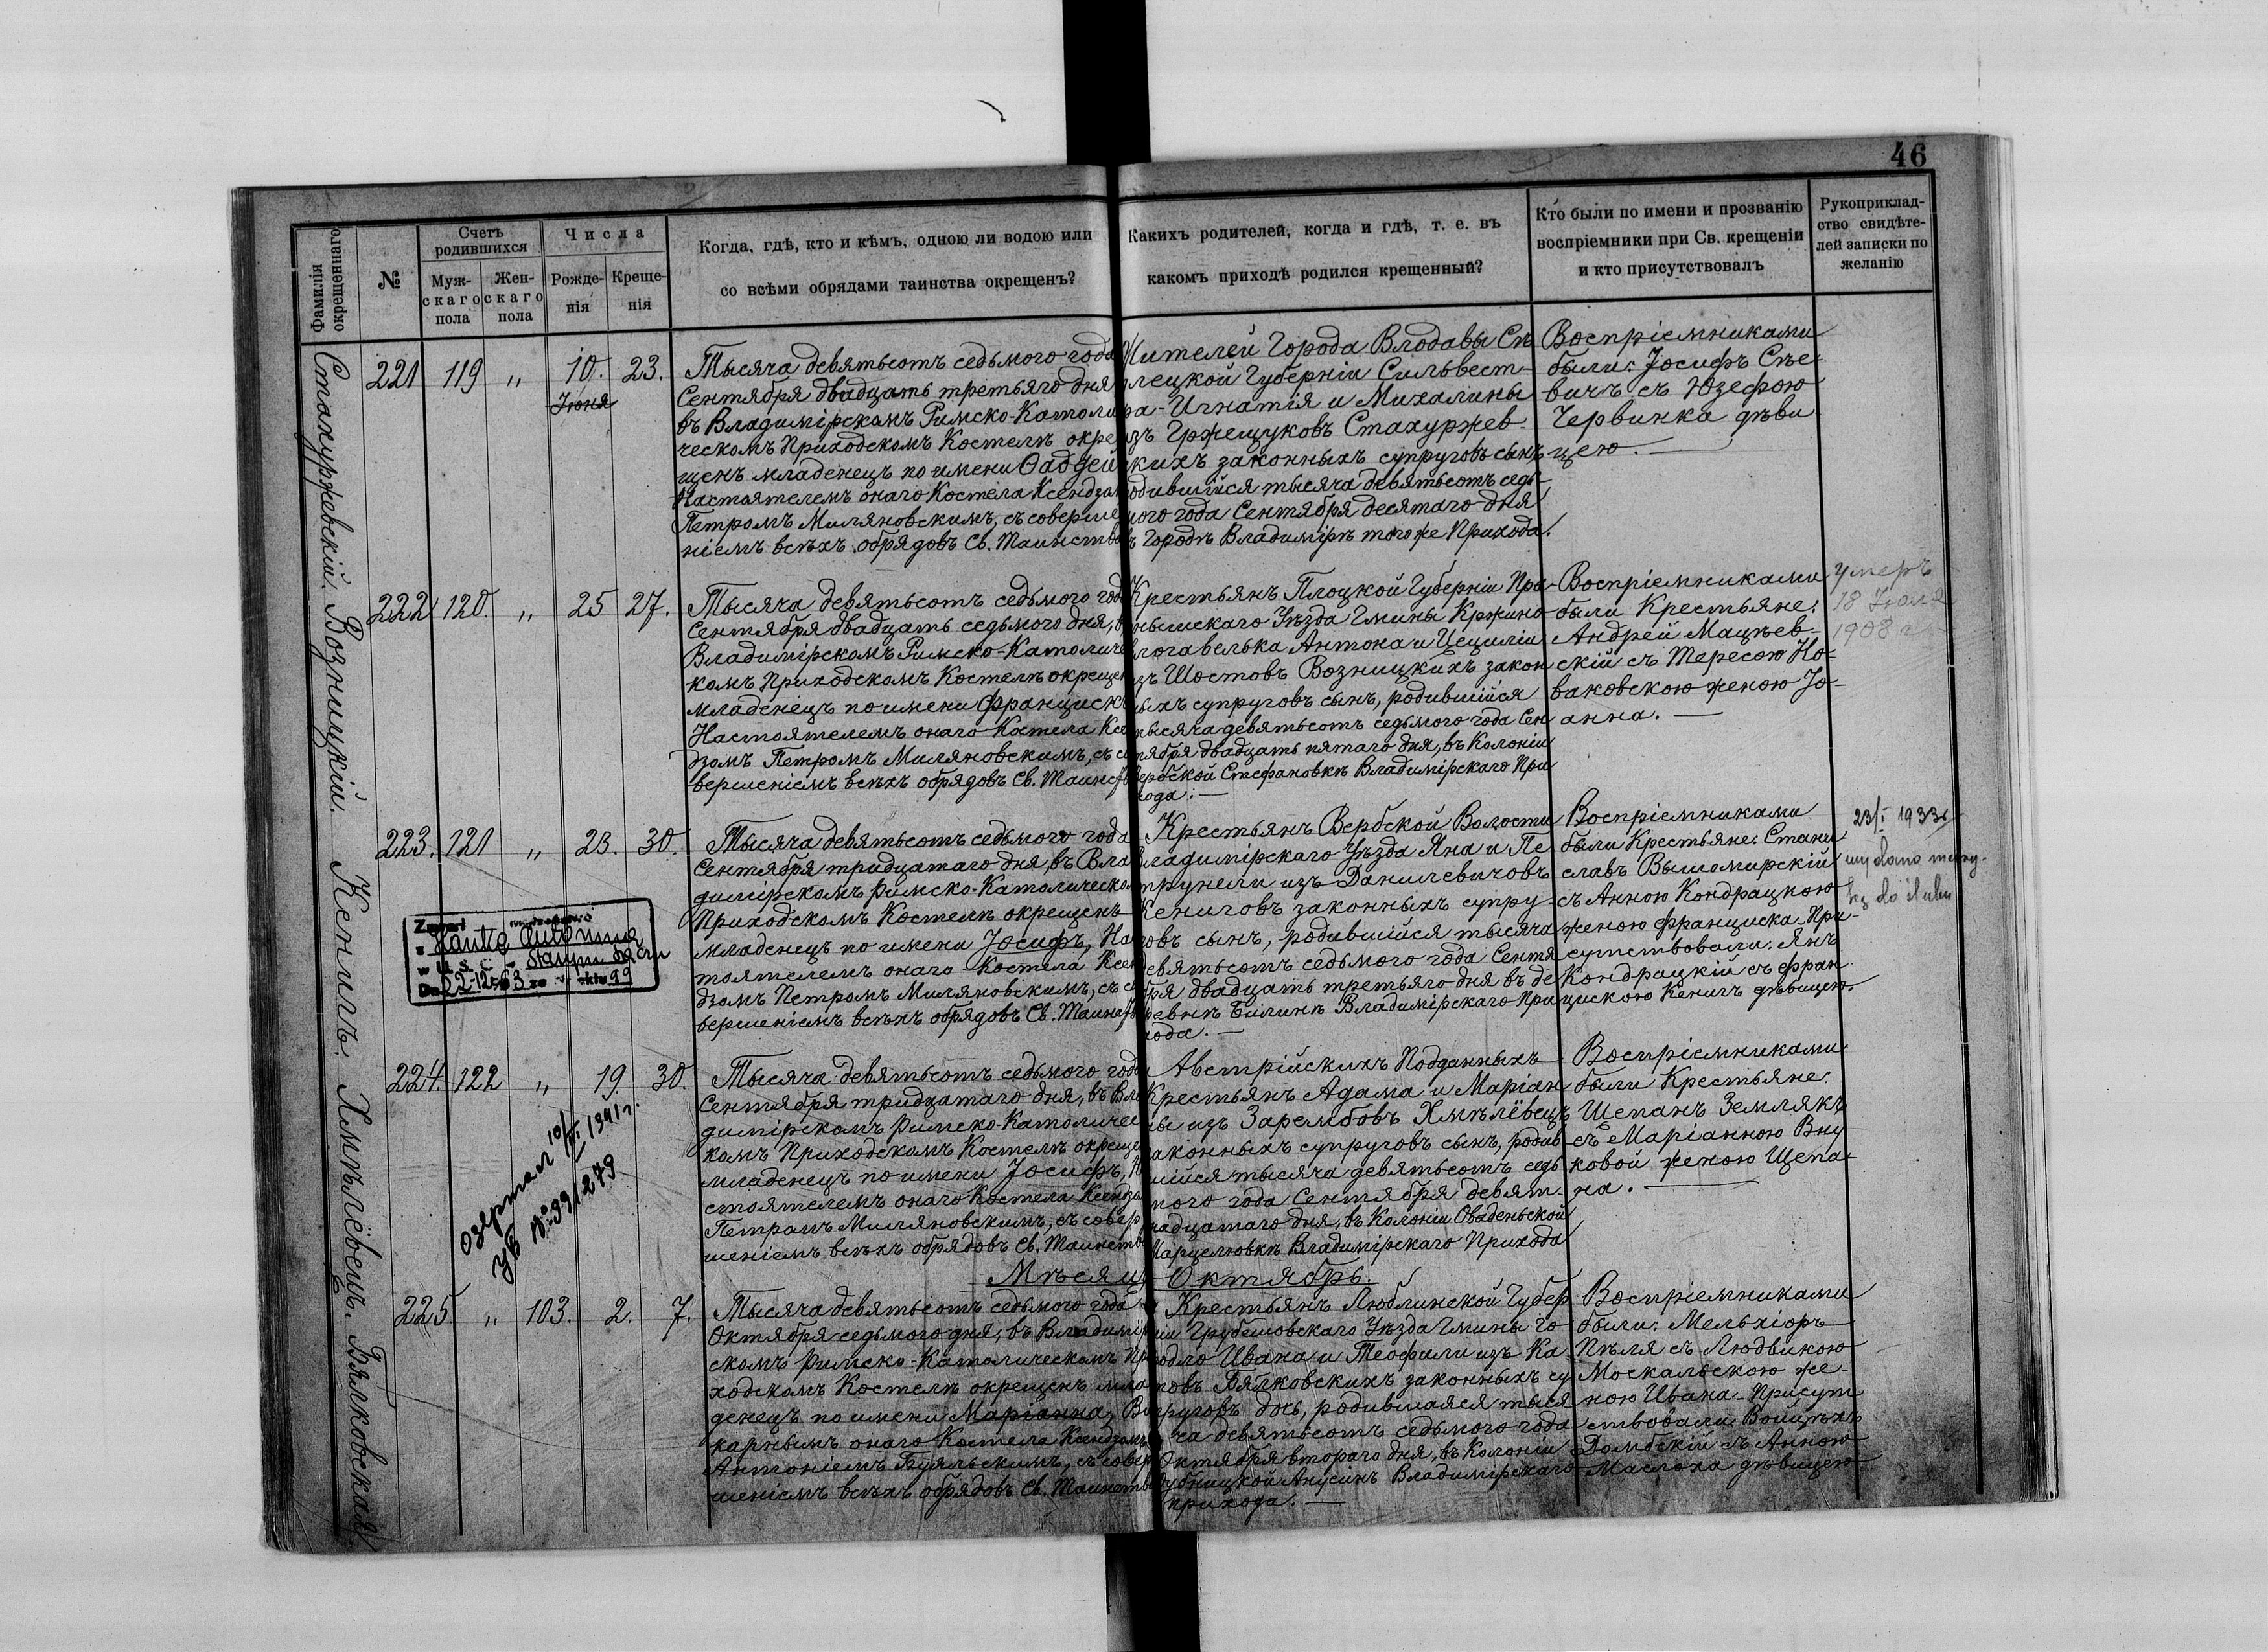 46
Фамилія окрещеннаго
№
Счетъ родившихся
Муж-скаго пола
Жен-скаго пола
Числа
Рожде-нія
Креще-нія
Когда, гдѣ, кто и кѣмъ, одною ли водою или
со всѣми обрядами таинства окрещенъ?
Какихъ родителей, когда и гдѣ, т. е. въ
какомъ приходѣ родился крещенный?
Кто были по имени и прозванію
воспріемники при Св. крещеніи
и кто присутствовалъ
Рукоприклад-
ство свидѣте-
лей записки по
желанію
Стахуржевскій.
221 119 " 10. 23.
Іюня
Тысяча девятьсотъ седьмого года
Сентября двадцать третьяго дня
въ Владимірскомъ Римско-Католи
ческомъ Приходскомъ Костелѣ окре
щенъ младенецъ по имени Ѳаддей
Настоятелемъ онаго Костела Ксендзом
Петромъ Миляновскимъ, съ соверше
ніемъ всѣхъ обрядовъ Св. Таинства
Жителей Города Влодавы Сѣ
лецкой Губерніи Сильвест-
ра-Игнатія и Михалины
изъ Гржещуковъ Стахуржев-
кихъ законныхъ супруговъ сынъ
родившійся тысяча девятьсотъ седь-
мого года Сентября десятаго дня
въ Городѣ Владимірѣ того же Прихода.
Воспріемниками
были: Іосифъ Сѣе-
вичъ съ Юзефою
Червинка дѣви
цею. —
Возницкій.
222 120. " 25 27.
Тысяча девятьсотъ седьмого года
Сентября двадцать седьмого дня, в
Владимірскомъ Римско-Католиче
комъ Приходскомъ Костелѣ окрещен
младенецъ по имени Францискъ
Настоятелемъ онаго Костела Ксе
дзомъ Петромъ Миляновскимъ, съ со
вершеніемъ всѣхъ обрядовъ Св. Таинств
Крестьянъ Плоцкой Губерніи Пра-
нышскаго Уѣзда Гмины Кржино-
влогавелька Антона и Цециліи
изъ Шостовъ Возницкихъ закон
ныхъ супруговъ сынъ, родившійся
тысяча девятьсотъ седьмого года Сен
тября двадцать пятаго дня, въ Колоніи
Вербской Стефановкѣ Владимірскаго При
хода. —
Воспріемниками
были Крестьяне:
Андрей Мацѣев-
скій съ Тересою Но-
ваковскою женою Іо-
анна. —
умеръ
18 Іюля
1908 г.
Кенигъ.
223. 121 " 23. 30.
Тысяча девятьсотъ седьмого года
Сентября тридцатаго дня, въ Вла
димірскомъ Римско-Католическо
Приходскомъ Костелѣ окрещенъ
младенецъ по имени Іосифъ, На
тоятелемъ онаго Костела Ксен
дзомъ Петромъ Миляновскимъ, съ с
вершеніемъ всѣхъ обрядовъ Св. Таинств
Крестьянъ Вербской Волости
Владимірскаго Уѣзда Яна и Пе
трунели изъ Данилевичовъ
Кениговъ законныхъ супру-
говъ сынъ, родившійся тысяча
девятьсотъ седьмого года Сентя
бря двадцать третьяго дня въ де
ревнѣ Билинѣ Владимірскаго При
хода. —
Воспріемниками
были Крестьяне: Стани
славъ Вышомирскій
съ Анною Кондрацкою
женою Франциска. При-
сутствовали: Янъ
Кондрацкій съ Фран
цискою Кенигъ дѣвицею.
23/I 1933
wydano metry-
kę do ślubu
w U. S. C.
22-12-63
99
Хмѣлёвецъ.
224. 122 " 19 30.
Тысяча девятьсотъ седьмого года
Сентября тридцатаго дня, въ Вла
димірскомъ Римско-Католичес
комъ Приходскомъ Костелѣ окреще
младенецъ по имени Іосифъ, На
стоятелемъ онаго Костела Ксендзо
Петромъ Миляновскимъ, съ совер
шеніемъ всѣхъ обрядовъ Св. Таинств
Австрійскихъ Подданныхъ
Крестьянъ Адама и Маріан
ны изъ Зарембовъ Хмѣлёвецъ
законныхъ супруговъ сынъ, родив-
шійся тысяча девятьсотъ седь
мого года Сентября девят-
надцатаго дня, въ Колоніи Оваденьской
Марцелювкѣ Владимірскаго Прихода
Воспріемниками
были Крестьяне:
Щепанъ Землякъ
съ Маріанною Вну
ковой женою Щепа-
на. —
1941 г.
Мѣсяцъ Октябрь.
Бялковская
225. " 103. 2. 7.
Тысяча девятьсотъ седьмого года
Октября седьмого дня, въ Владимір
скомъ Римско-Католическомъ Пр
ходскомъ Костелѣ окрещенъ мла
денецъ по имени Маріанна, Ви
карнымъ онаго Костела Ксендзомъ
Антоніемъ Буяльскимъ, съ совер
шеніемъ всѣхъ обрядовъ Св. Таинств
Крестьянъ Люблинской Губер
ніи Грубешовскаго Уѣзда Гмины Го
родло Ивана и Теофили изъ Ка
повъ Бялковскихъ законныхъ су
пруговъ дочь, родившаяся тыся
ча девятьсотъ седьмого года
Октября второго дня, въ Колоніи
Дубницкой Анусинъ Владимірскаго
прихода. —
Воспріемниками
были: Мельхіоръ
Пѣля съ Людвикою
Москальскою же-
ною Ивана. Присут
ствовали: Войцѣхъ
Домбскій съ Анною
Маслоха дѣвицею